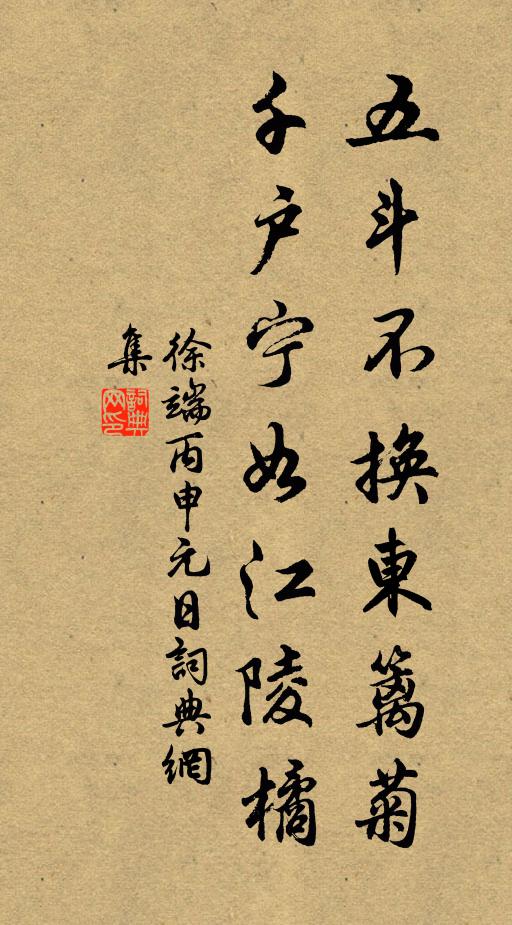 五斗不換東籬菊
千户宁如江陵橘
徐端丙申元日詞典網
集
詞典網印